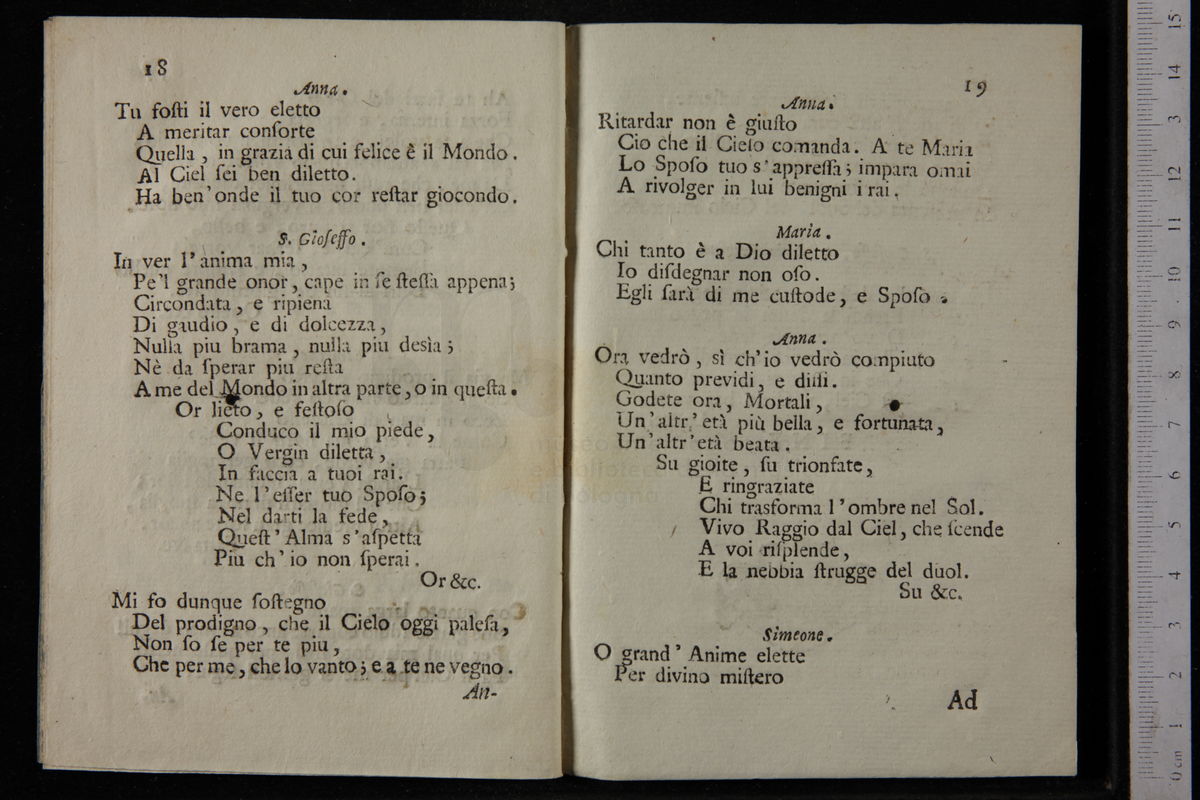 18
Anna.
Tu foſti il vero eletto
A meritar conſorte
Quella, in grazia di cui felice è il Mondo.
Al Ciel ſei ben diletto.
Ha ben'onde il tuo cor reſtar giocondo.
S. Gioſeffo.
In ver l'anima mia,
Pe'l grande onor, cape in ſe ſteſſa appena;
Circondata, e ripiena
Di gaudio, e di dolcezza,
Nulla piu brama, nulla piu desìa;
Nè da ſperar piu reſta
A me del Mondo in altra parte, o in queſta.
Or lieto, e feſtoſo
Conduco il mio piede,
O Vergin diletta,
In faccia a tuoi rai.
Ne l'eſſer tuo Spoſo;
Nel darti la fede,
Queſt'Alma s'aſpetta
Piu ch'io non ſperai.
Or &c.
Mi fo dunque ſoſtegno
Del prodigno, che il Cielo oggi paleſa,
Non ſo ſe per te piu,
Che per me, che lo vanto; e a te ne vegno.
An-
19
Anna.
Ritardar non è giuſto
Cio che il Cielo comanda. A te Maria
Lo Spoſo tuo s'appreſſa; impara omai
A rivolger in lui benigni i rai.
Maria.
Chi tanto è a Dio diletto
Io diſdegnar non oſo.
Egli ſarà di me cuſtode, e Spoſo.
Anna.
Ora vedrò, sì ch'io vedrò compiuto
Quanto previdi, e diſſi.
Godete ora, Mortali,
Un'altr'età più bella, e fortunata,
Un'altr'età beata.
Su gioite, ſu trionfate,
E ringraziate
Chi trasforma l'ombre nel Sol.
Vivo Raggio dal Ciel, che ſcende
A voi riſplende,
E la nebbia ſtrugge del duol.
Su &c.
Simeone.
O grand'Anime elette
Per divino miſtero
Ad